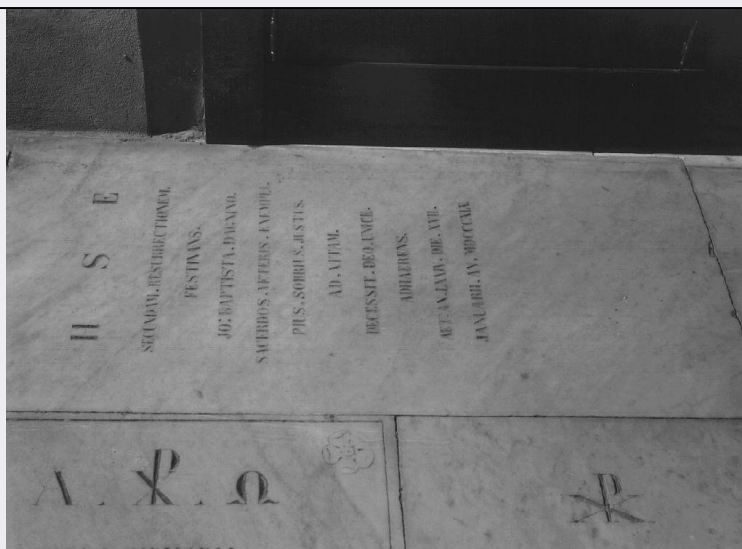 H S E
SECUNDAM.RESURRECTIONEM.
FESTINANS.
JO: BAPTISTA.DAGNINO.
SACERDOS.VETERIS.EXEMPLI.
PIUS.SOBRIUS.JUSTUS.
AD.VITAM.
DECESSIT.DEO.UNICE.
ADHAERENS.
AET.AN.LXXIV.DIE.XVII.
JANUARII.AN.MDCCCXLIX
Α ☧ Ω
☧